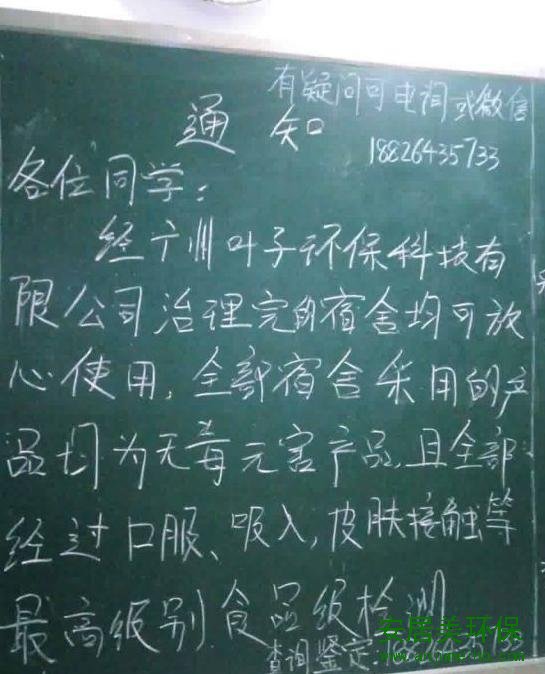 有疑问可电询或微信
通知
18826435733
各位同学：
经广州叶子环保科技有
限公司治理完的宿舍均可放
心使用，全部宿舍采用的产
品均为无毒无害产品，且全部
经过口服、吸入，皮肤接触等
最高级别食品级检测
查询鉴定：18826435733
安居美环保